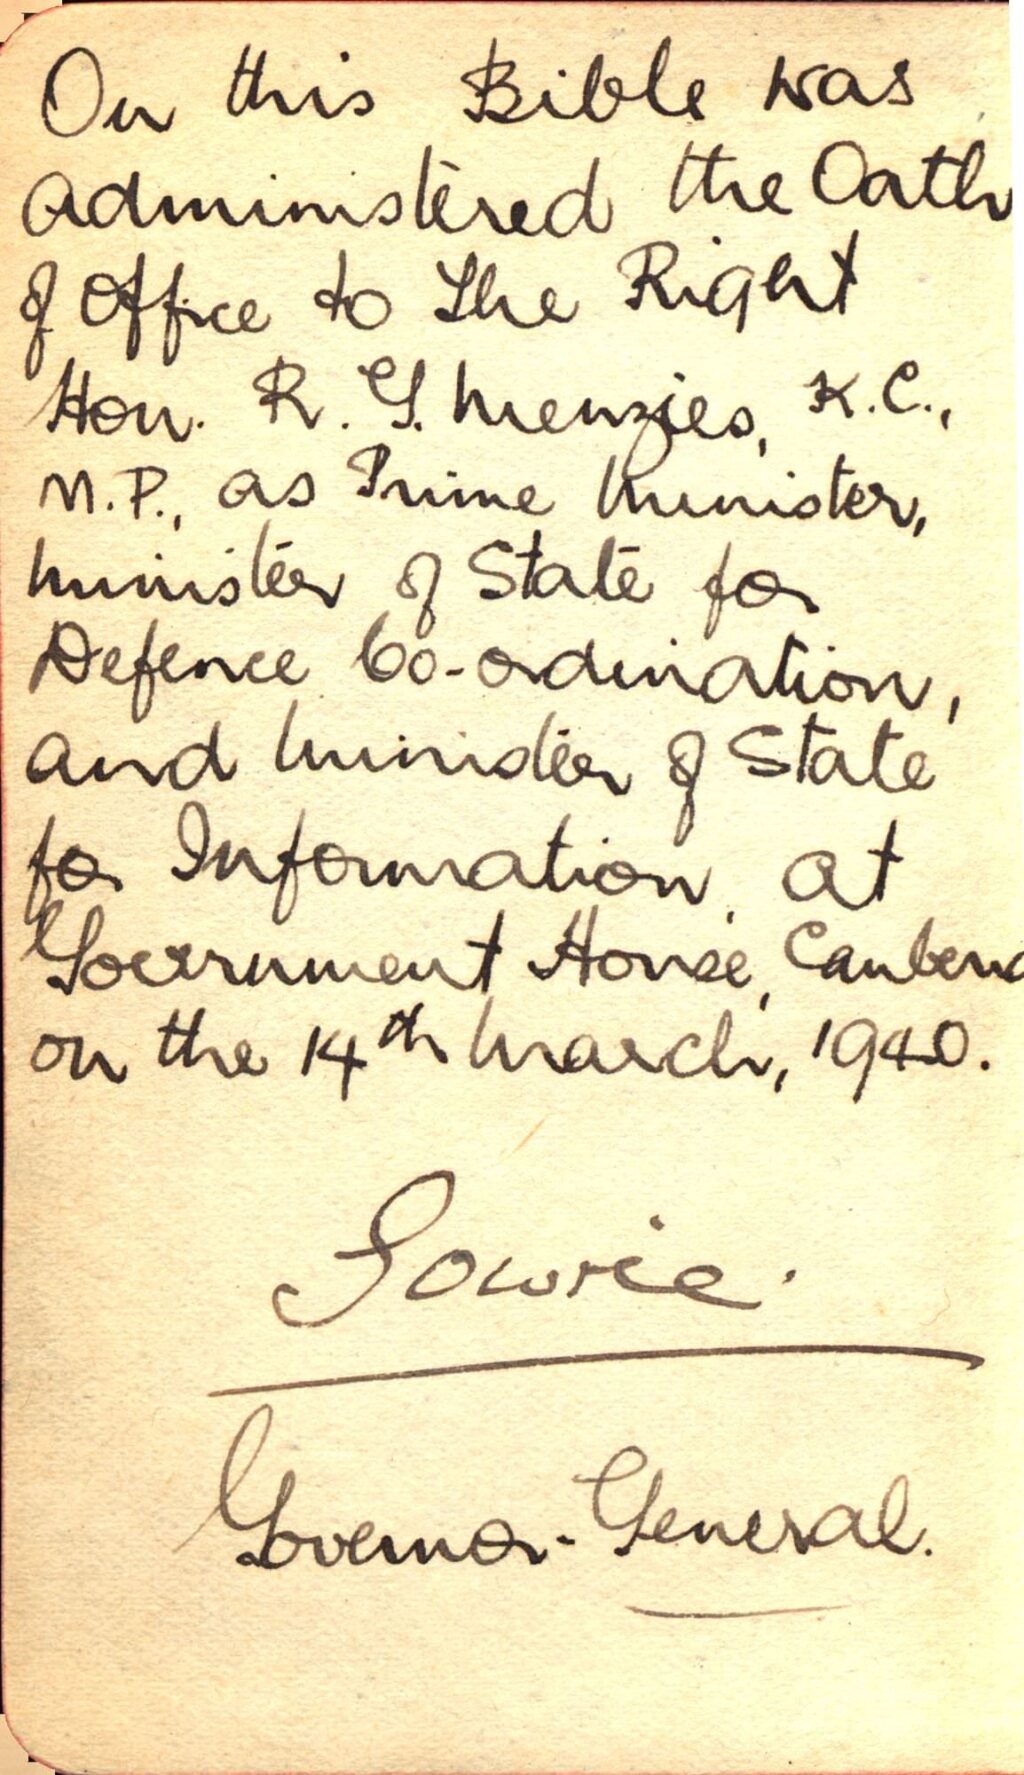 On this Bible was
administered the Oath
of Office to The Right
Hon. R. G. Menzies, K.C.,
M.P., as Prime Minister,
Minister of State for
Defence Co-ordination,
and Minister of State
for Information, at
Government House, Canberra
on the 14th March, 1940.
Gowrie.
Governor-General.